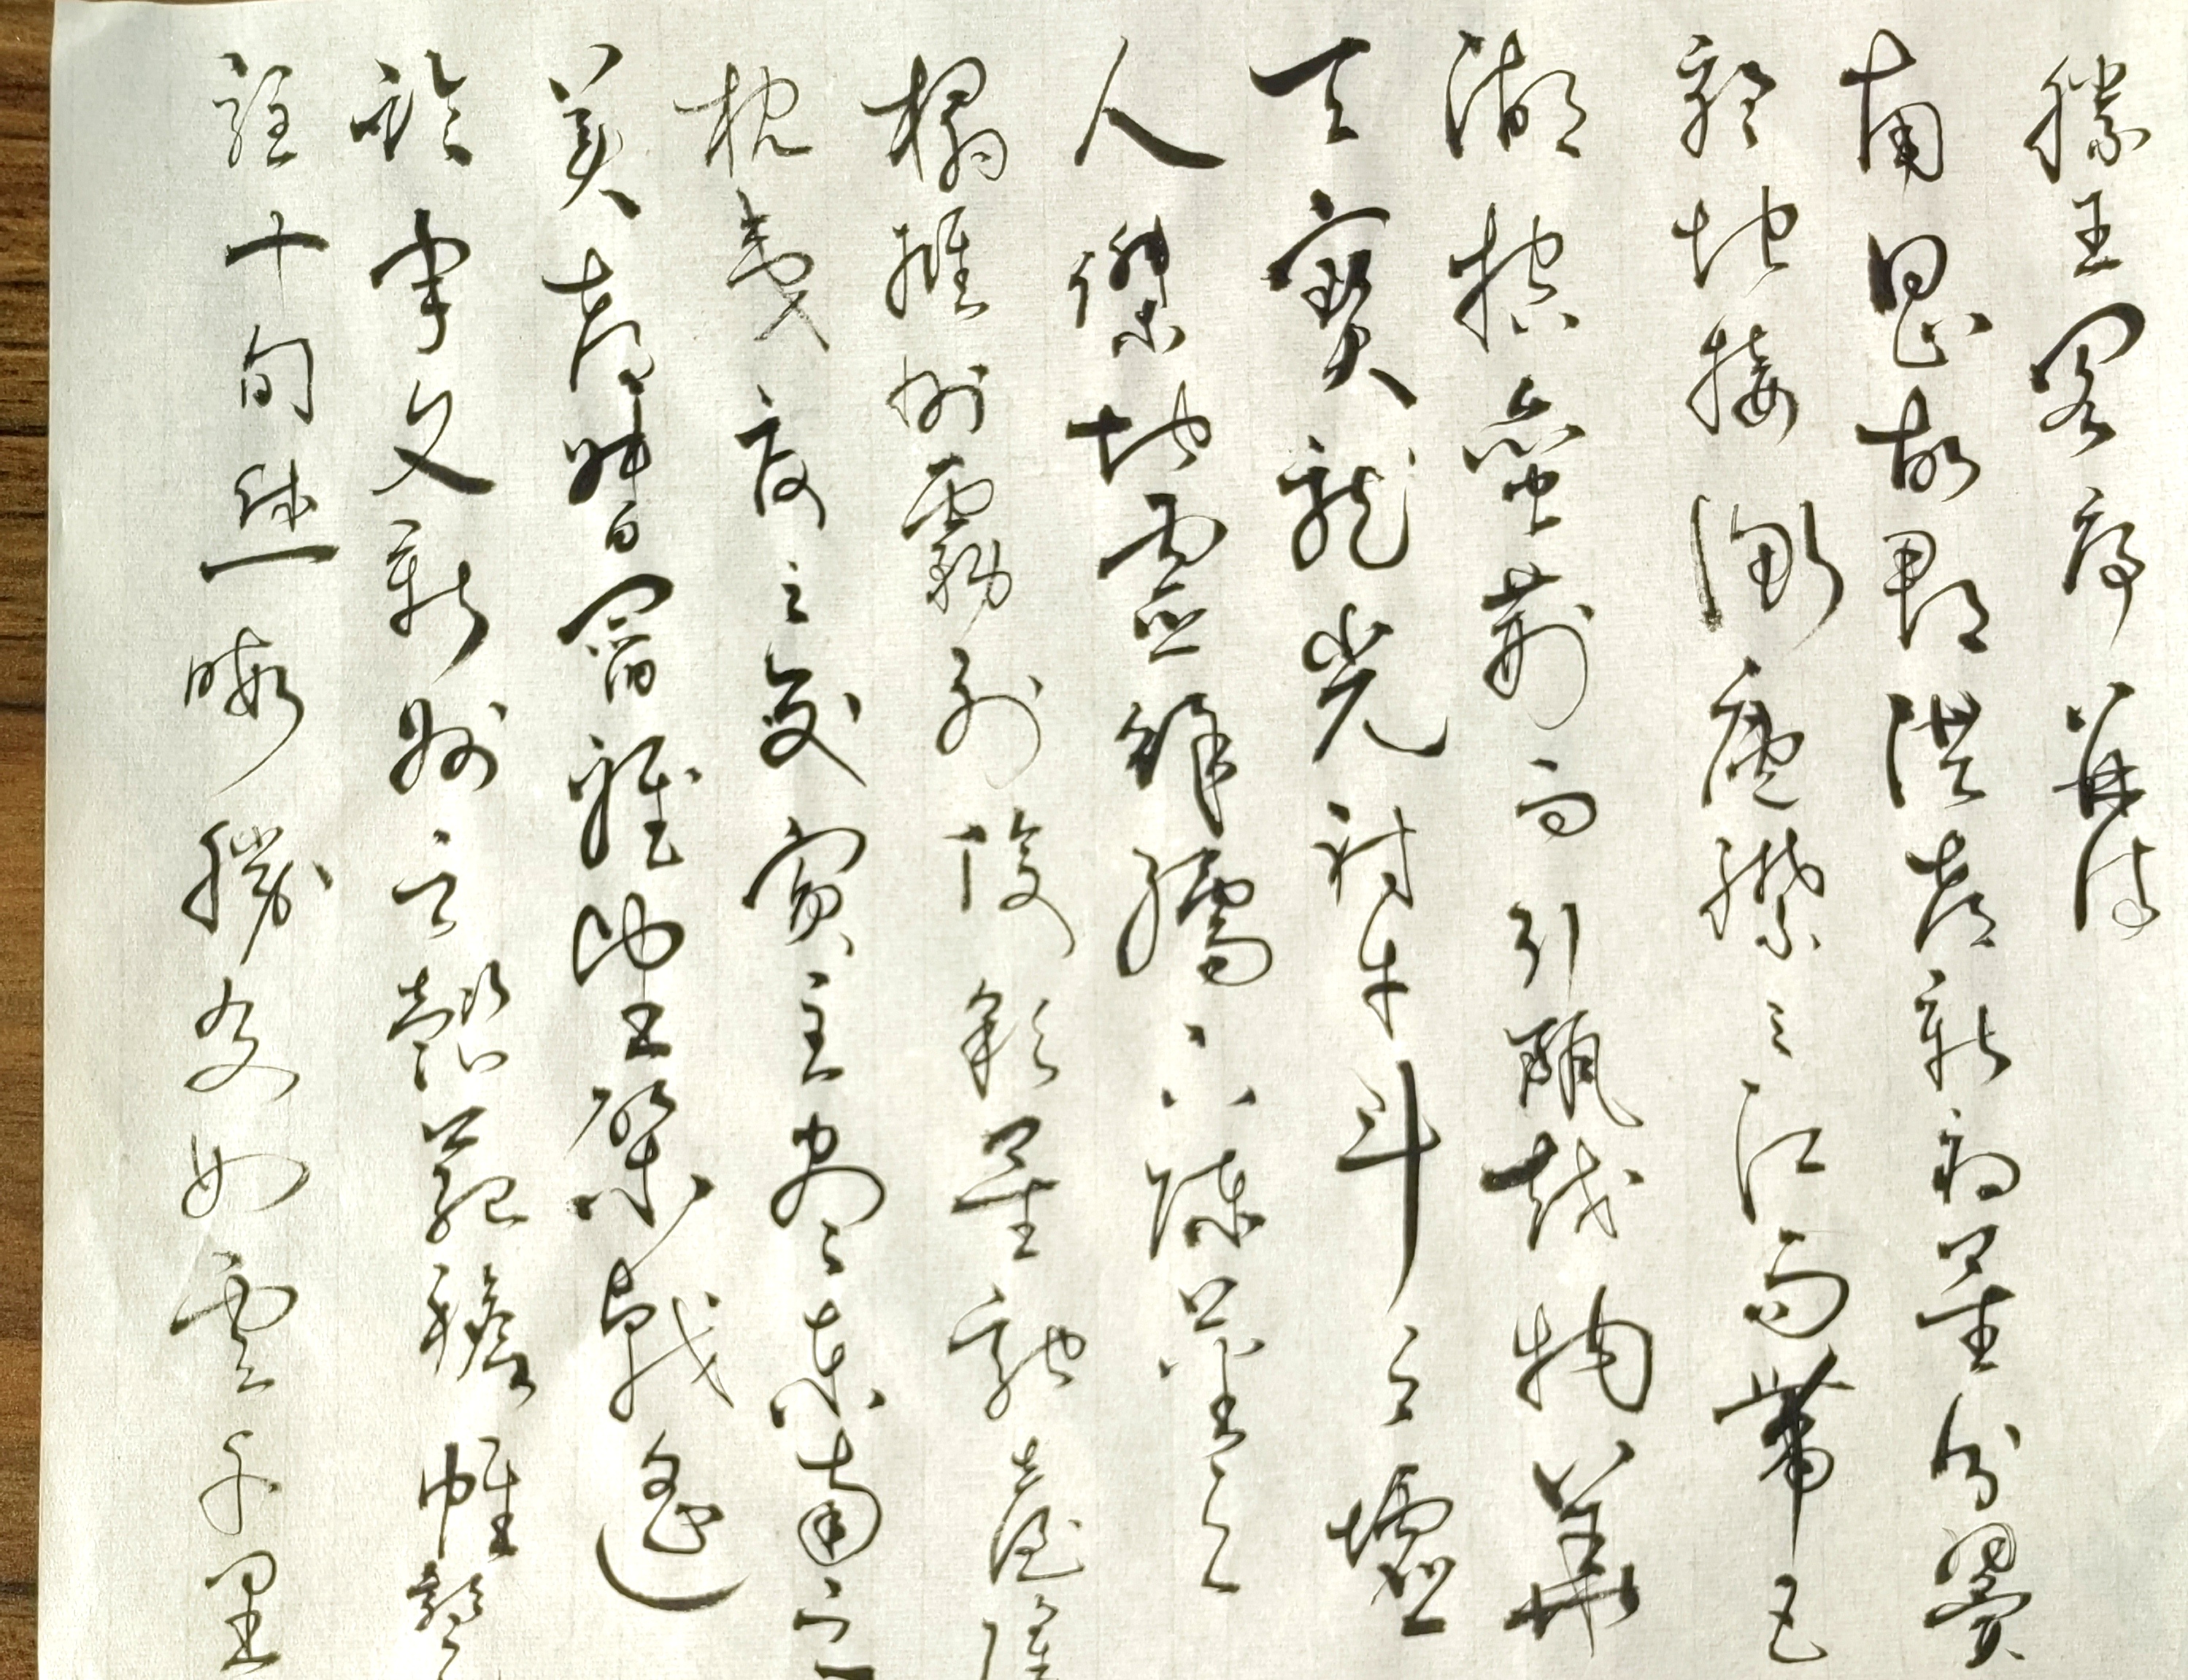 滕王閣序并詩
南昌故郡洪都新府星分翼
軫地接衡廬襟三江而帶五
湖控蠻荊而引甌越物華
天寶龍光射牛斗之墟
人傑地靈徐孺下陳蕃之
榻雄州霧列俊彩星馳臺隍
枕夷夏之交賓主盡東南之
美都督閻雅望棨戟遙
臨宇文新州之懿範襜帷暫
駐十旬休暇勝友如雲千里